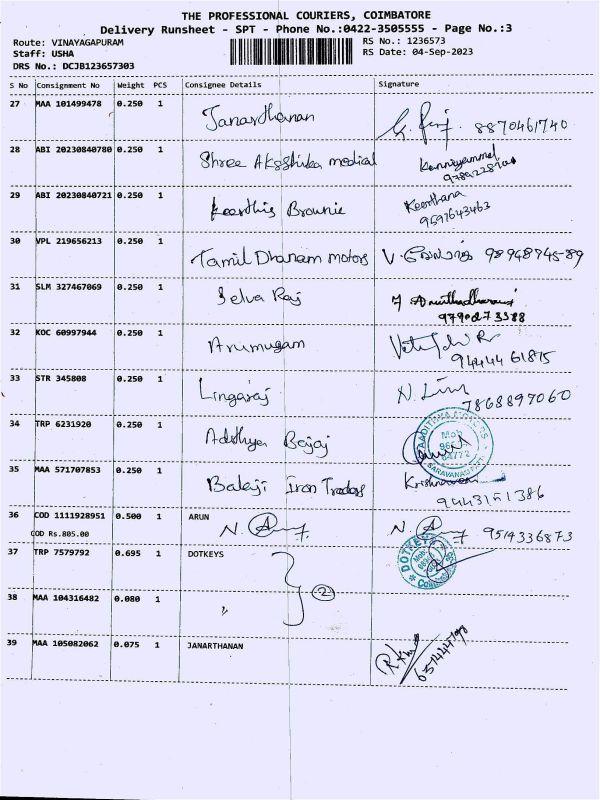 THE PROFESSIONAL COURIERS, COIMBATORE
Delivery Runsheet - SPT - Phone No.:0422-3505555 - Page No.:3
Route: VINAYAGAPURAM RS No.: 1236573
Staff: USHA RS Date: 04-Sep-2023
DRS No.: DCJB123657303
S No Consignment No Weight PCS Consignee Details Signature
27 MAA 101499478 0.250 1 Janardhanan 8870461740
28 ABI 20230840780 0.250 1 Shree Medical Kanniyammal
29 ABI 20230840721 0.250 1 Keerthis Brownie Keerthana
9597643463
30 VPL 219656213 0.250 1 Tamil Dhanam motors V. 98948745-89
31 SLM 327467069 0.250 1 Selva Raj
9790273388
32 KOC 60997944 0.250 1 Arumugam
94444 61815
33 STR 345808 0.250 1 Lingaraj N. Ling
7868897060
34 TRP 6231920 0.250 1 Adithya Bajaj
35 MAA 571707853 0.250 1 Balaji Iron Traders Krishnaveni
9443151386
36 COD 1111928951 0.500 1 ARUN
COD Rs.805.00 N. N. 9514336873
37 TRP 7579792 0.695 1 DOTKEYS DOTKEYS
2
38 MAA 104316482 0.080 1 "
39 MAA 105082062 0.075 1 JANARTHANAN